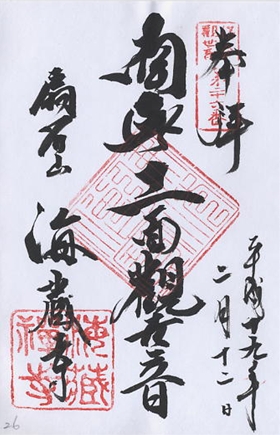 奉拝
平成十九年
二月十二日
南無十一面觀世音
扇谷山
海蔵寺
海藏
禅寺
26